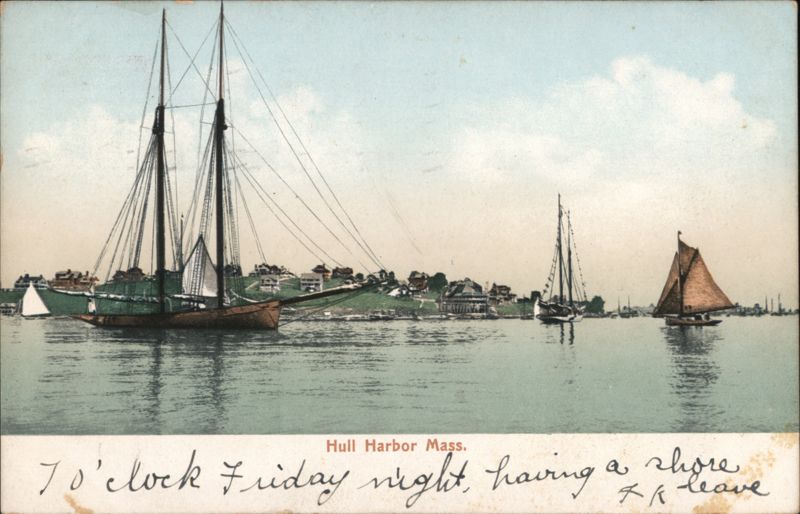 Hull Harbor Mass.
7 o'clock Friday night, having a shore
leave